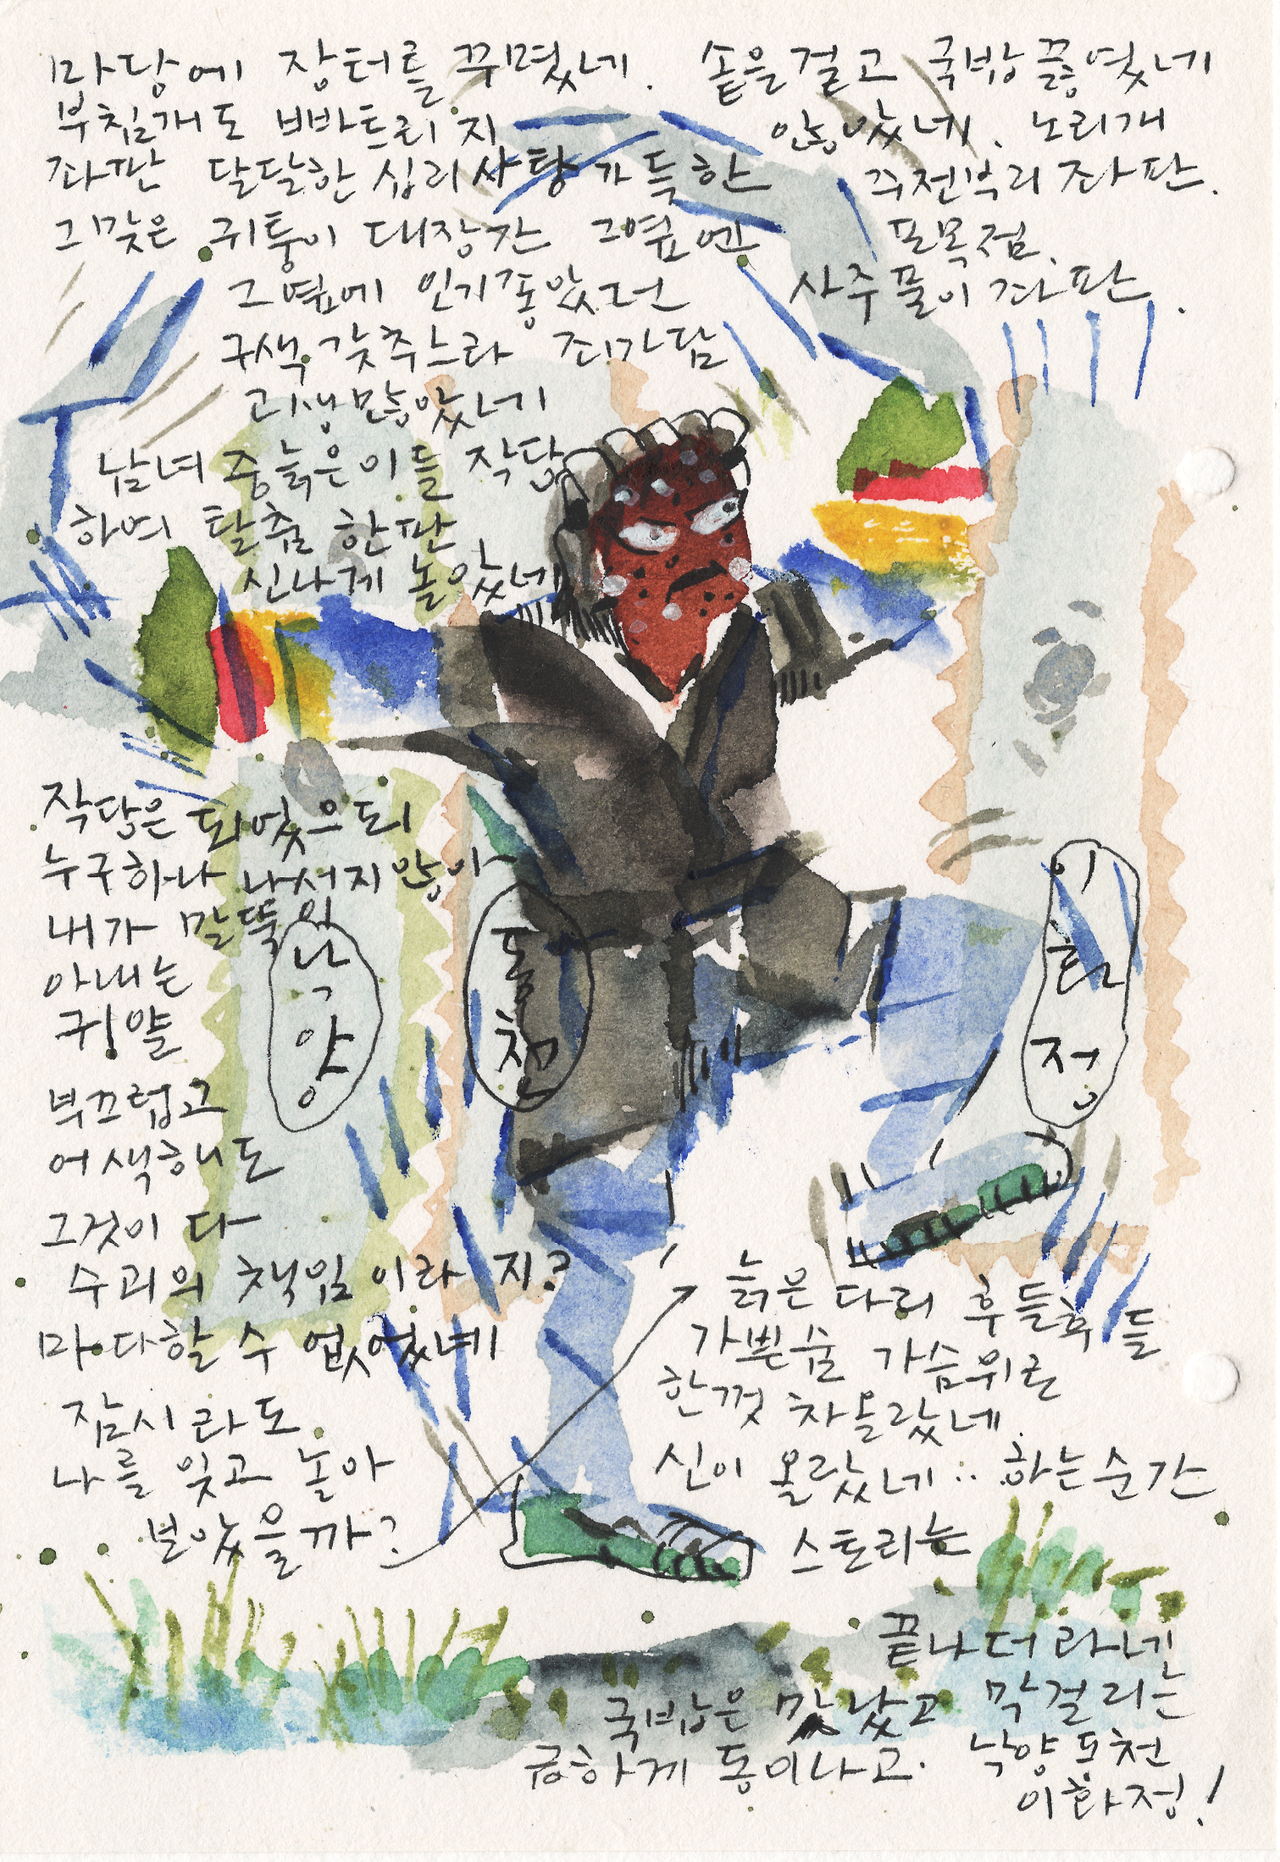 마당에 장터를 꾸몄네. 솥을걸고 국밥끓였네
부침개도 빠트리지 않았네. 노리개
좌판 달달한 십리사탕가득한 주전부리 좌판.
그맞은 귀퉁이 대장간 그옆엔 포목점.
그옆에 인기좋았던 사주풀이 좌판.
구색 갖추느라 죄가담
고생많았네
남녀 중늙은이들 작당
하여 탈춤 한판
신나게 놀았네
작당은 되었으되
누구하나 나서지않아
내가 말뚝이
아내는
귀얄
부끄럽고
어색해도
그것이 다
수괴의 책임이라지?
마다할 수 없었네
잠시라도
나를 잊고 놀아
보았을까?
낙양
동천
이화정
늙은 다리 후들후들
가쁜숨 가슴위로
한껏 차올랐네
신이 올랐네.. 하는순간
스토리는
끝나더라네
국밥은 맛났고 막걸리는
급하게 동이나고. 낙양동천
이화정!